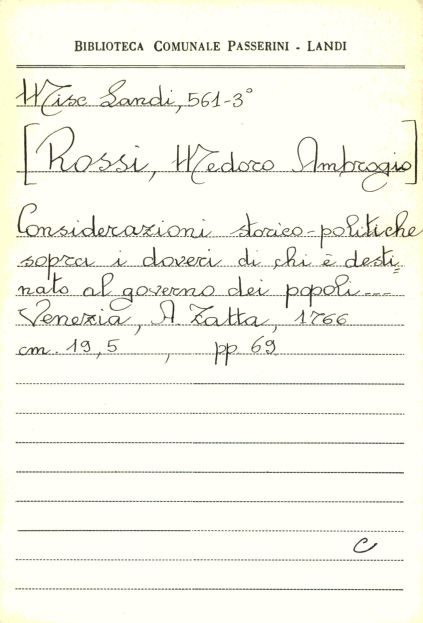 BIBLIOTECA COMUNALE PASSERINI - LANDI
Misc Landi, 561-3°
[Rossi, Medoro Ambrogio]
Considerazioni storico-politiche
sopra i doveri di chi è desti=
nato al governo dei popoli....
Venezia, A. Zatta, 1766
cm. 19,5 , pp. 69
C